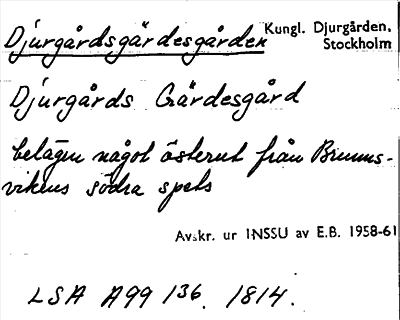 Djurgårdsgärdesgården
Kungl. Djurgården,
Stockholm
Djurgårds Gärdesgård
belägen något österut från Brunns-
vikens södra spets
Avskr. ur INSSU av E.B. 1958-61
LSA A99 136. 1814.